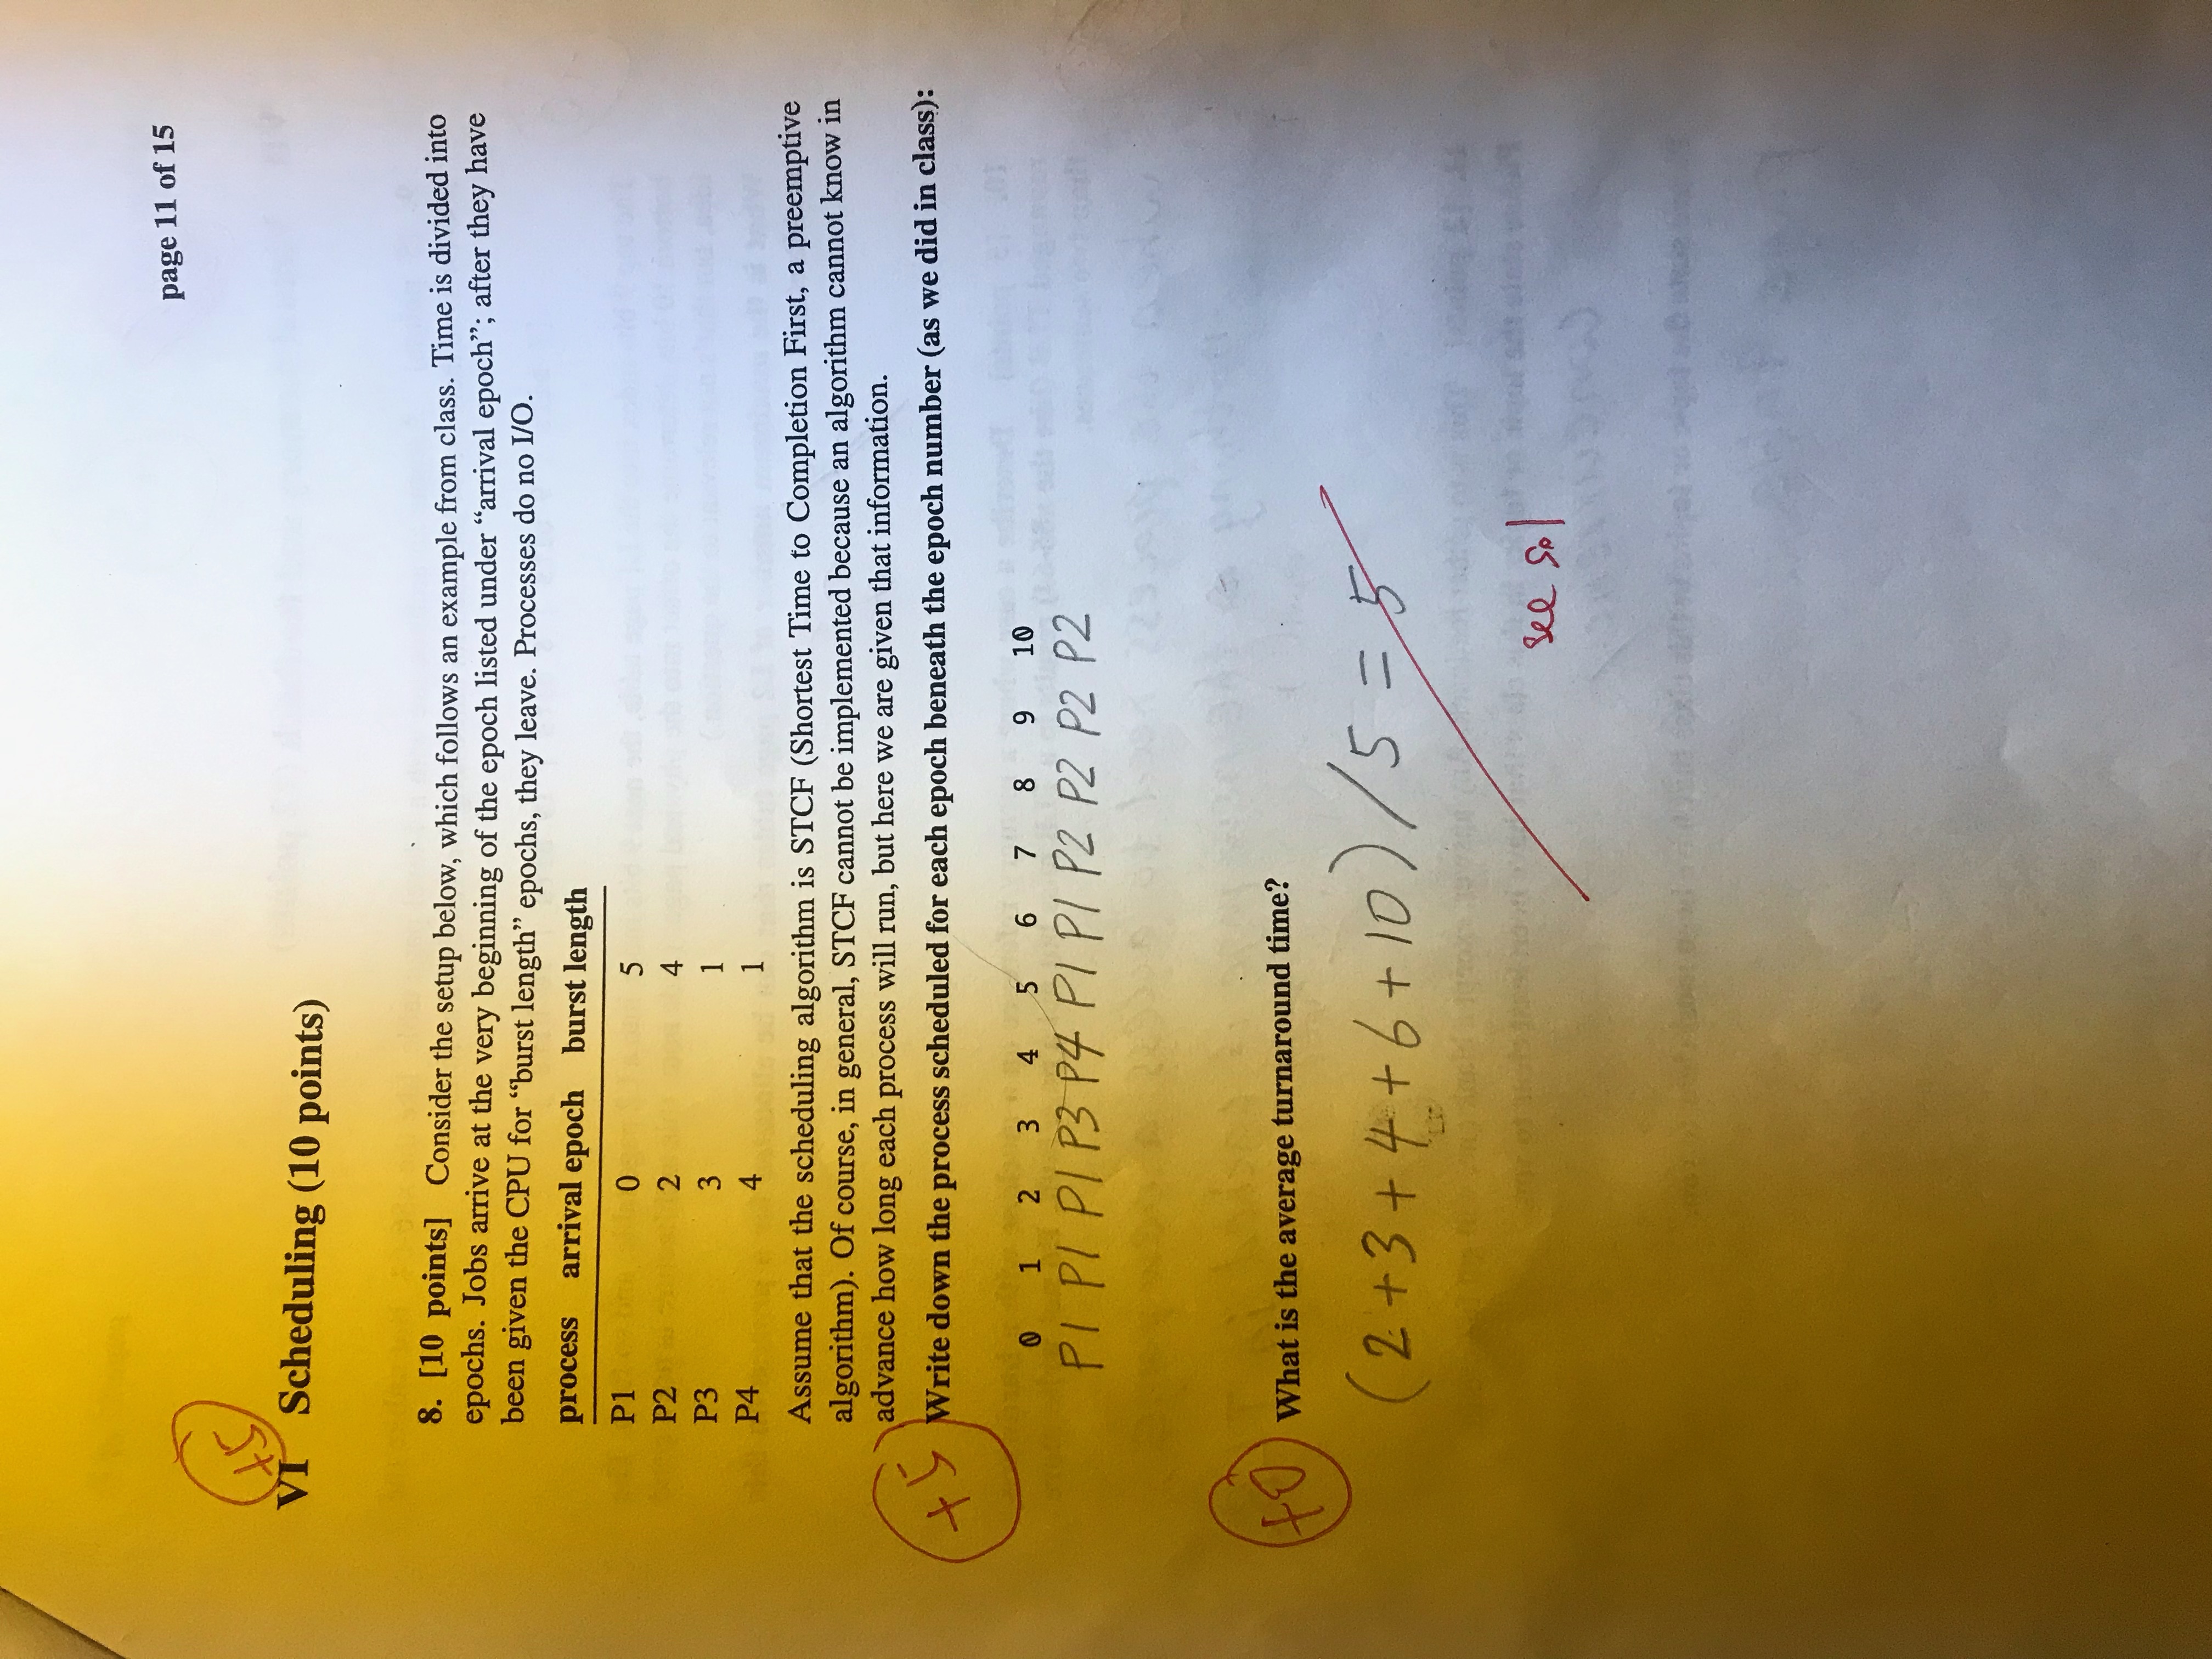 page 11 of 15
+5
VI Scheduling (10 points)
8. [10 points] Consider the setup below, which follows an example from class. Time is divided into
epochs. Jobs arrive at the very beginning of the epoch listed under “arrival epoch”; after they have
been given the CPU for “burst length” epochs, they leave. Processes do no I/O.
process arrival epoch burst length
P1 0 5
P2 2 4
P3 3 1
P4 4 1
Assume that the scheduling algorithm is STCF (Shortest Time to Completion First, a preemptive
algorithm). Of course, in general, STCF cannot be implemented because an algorithm cannot know in
advance how long each process will run, but here we are given that information.
+5
Write down the process scheduled for each epoch beneath the epoch number (as we did in class):
0 1 2 3 4 5 6 7 8 9 10
P1 P1 P1 P3 P4 P1 P1 P2 P2 P2 P2
+0
What is the average turnaround time?
(2+3+4+6+10)/5 = 5
see sol